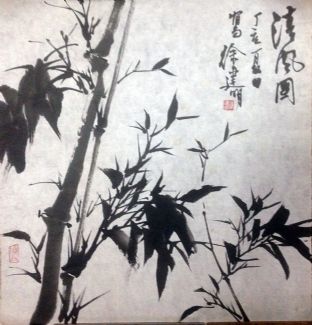 清风图
丁亥夏日
写徐建明